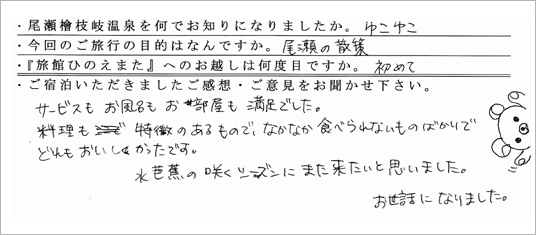 ・尾瀬檜枝岐温泉を何でお知りになりましたか。 ゆこゆこ
・今回のご旅行の目的はなんですか。 尾瀬の散策
・『旅館ひのえまた』へのお越しは何度目ですか。 初めて
・ご宿泊いただきましたご感想・ご意見をお聞かせ下さい。
サービスも お風呂も お部屋も 満足でした。
料理も 特徴のあるもので、なかなか食べられないものばかりで
どれもおいしかったです。
水芭蕉の咲くシーズンにまた来たいと思いました。
お世話になりました。